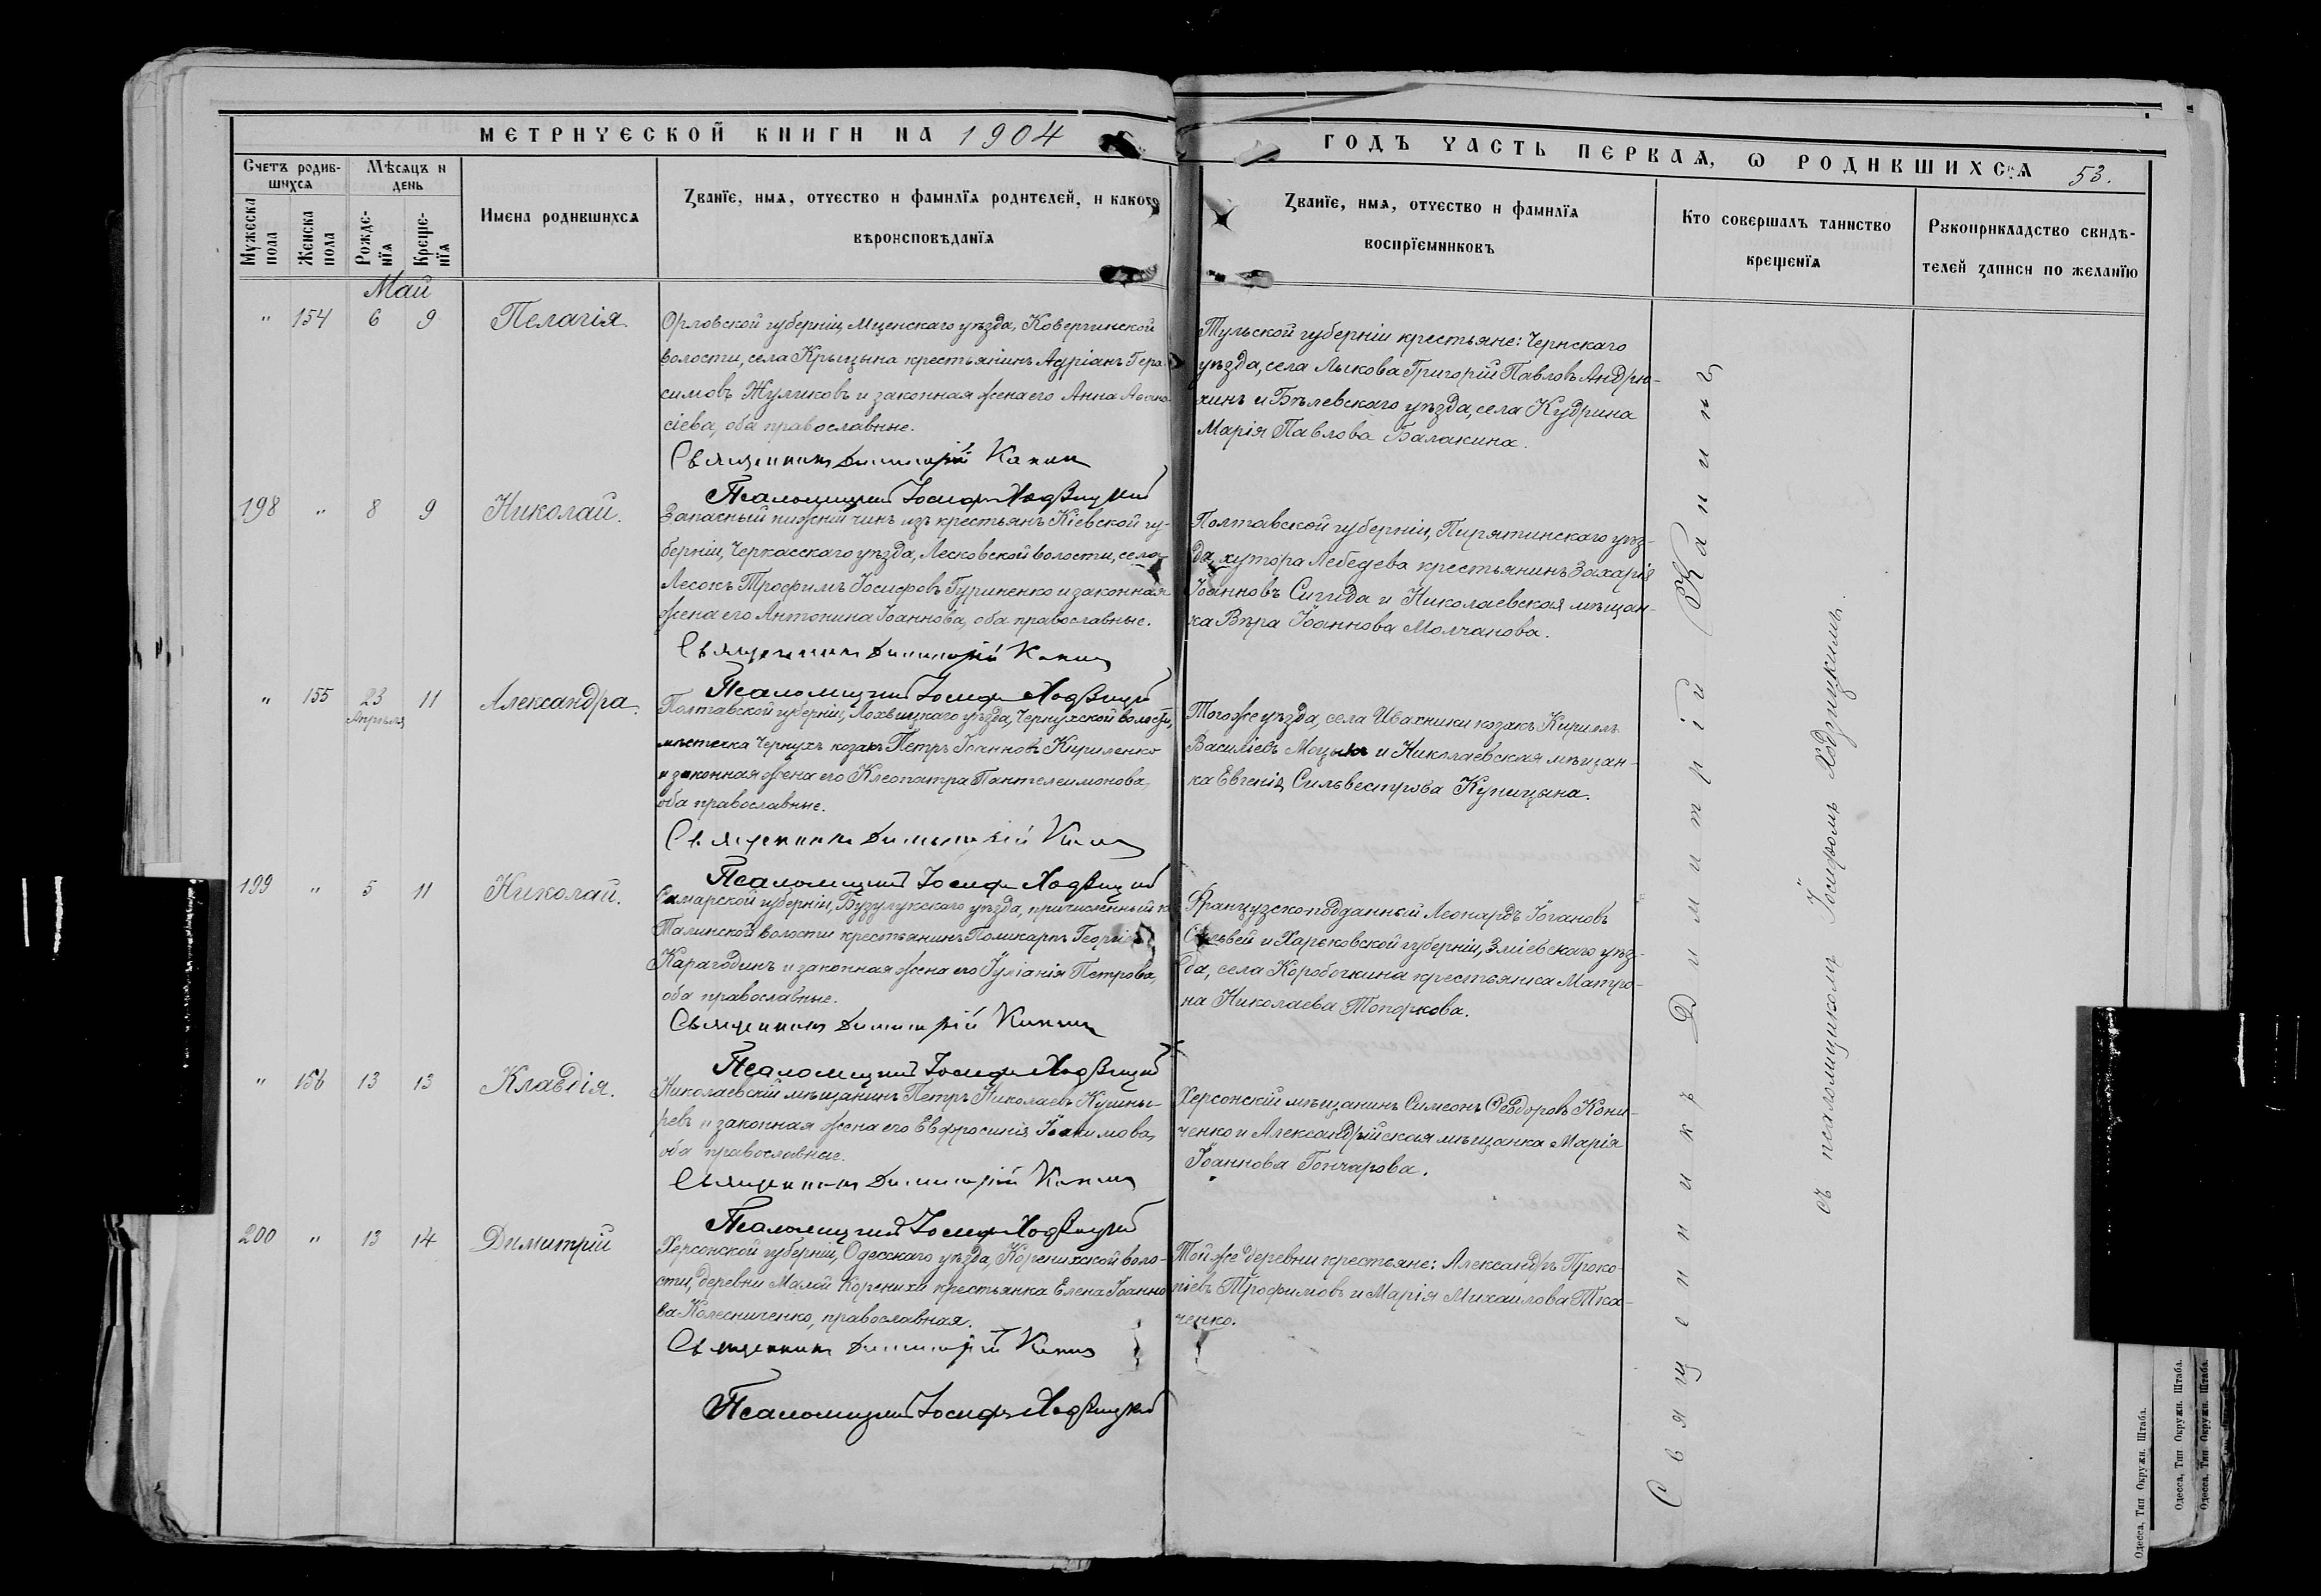 МЕТРИЧЕСКОЙ КНИГИ НА 1904
ГОДЪ ЧАСТЬ ПЕРВАЯ, Ѡ РОДИВШИХСЯ 53.
Счетъ родив-
шихся
Мѣсяцъ и
день
Мужеска
пола
Женска
пола
Рожде-
нїя
Креще-
нїя
Имена родившихся
Званїе, имя, отчество и фамилїя родителей, и какого
вѣроисповѣданїя
Званїе, имя, отчество и фамилїя
воспрїемниковъ
Кто совершалъ таинство
крещенїя
Рукоприкладство свидѣ-
телей записи по желанїю
Май
" 154 6 9 Пелагія.
Орловской губерніи, Мценскаго уѣзда,
волости, села Крыцына крестьянинъ Адріанъ Гера-
симовъ Жуликовъ и законная жена его Анна Аѳана-
сіева, оба православные.
Священникъ Димитрій Канинъ
Псаломщикъ Іосифъ Ходзицкій
Тульской губерніи крестьяне: Чернскаго
уѣзда, села Лыкова Григорій Павловъ Андрю-
хинъ и Бѣлевскаго уѣзда, села Кудрина
Марія Павлова Балакина.
198 " 8 9 Николай.
Запасный нижній чинъ изъ крестьянъ Кіевской гу-
берніи, Черкасскаго уѣзда, Лесковской волости, села
Лесокъ Трофимъ Іосифовъ Гуриненко и законная
жена его Антонина Іоаннова, оба православные.
Священникъ Димитрій Канинъ
Псаломщикъ Іосифъ Ходзицкій
Полтавской губерніи, Пирятинскаго уѣз-
да, хутора Лебедева крестьянинъ Захарія
Іоанновъ Сигида и Николаевская мѣщан-
ка Вѣра Іоаннова Молчанова.
" 155 23 11 Александра.
Апрѣля
Полтавской губерніи, Лохвицкаго уѣзда, Чернухской волости,
мѣстечка Чернухъ козакъ Петръ Іоанновъ Кириленко
и законная жена его Клеопатра Пантелеимонова,
оба православные.
Священникъ Димитрій Канинъ
Псаломщикъ Іосифъ Ходзицкій
Того же уѣзда, села Ивахники козакъ Кириллъ
Василіевъ и Николаевская мѣщан-
ка Евгенія Сильвестрова Купицына.
199 " 5 11 Николай.
Самарской губерніи, Бузулукскаго уѣзда, причисленный къ
Талинской волости крестьянинъ Поликарпъ Георгіевъ
Карагодинъ и законная жена его Іуліанія Петрова,
оба православные.
Священникъ Димитрій Канинъ
Псаломщикъ Іосифъ Ходзицкій
Французско-подданный Леонардъ Іогановъ
и Харьковской губерніи, Зміевскаго уѣз-
да, села Коробочкина крестьянка Матро-
на Николаева Топоркова.
" 156 13 13 Клавдія.
Николаевскій мѣщанинъ Петръ Николаевъ Кушны-
ревъ и законная жена его Евфросинія Іоакимова,
оба православные.
Священникъ Димитрій Канинъ
Псаломщикъ Іосифъ Ходзицкій
Херсонскій мѣщанинъ Симеонъ Ѳеодоровъ Кони-
ченко и Александрійская мѣщанка Марія
Іоаннова Гончарова.
200 " 13 14 Димитрій
Херсонской губерніи, Одесскаго уѣзда, Коренихской воло-
сти, деревни Малой Коренихи крестьянка Елена Іоанно-
ва Колесниченко, православная.
Священникъ Димитрій Канинъ
Псаломщикъ Іосифъ Ходзицкій
Той же деревни крестьяне: Александръ Проко-
піевъ Трофимовъ и Марія Михаилова Тка-
ченко.
Священникъ Димитрій Канинъ
съ псаломщикомъ Іосифомъ Ходзицкимъ.
Одесса, Тип Окружн. Штаба.
Одесса, Тип Окружн. Штаба.
Одесса, Тип Окружн. Штаба.